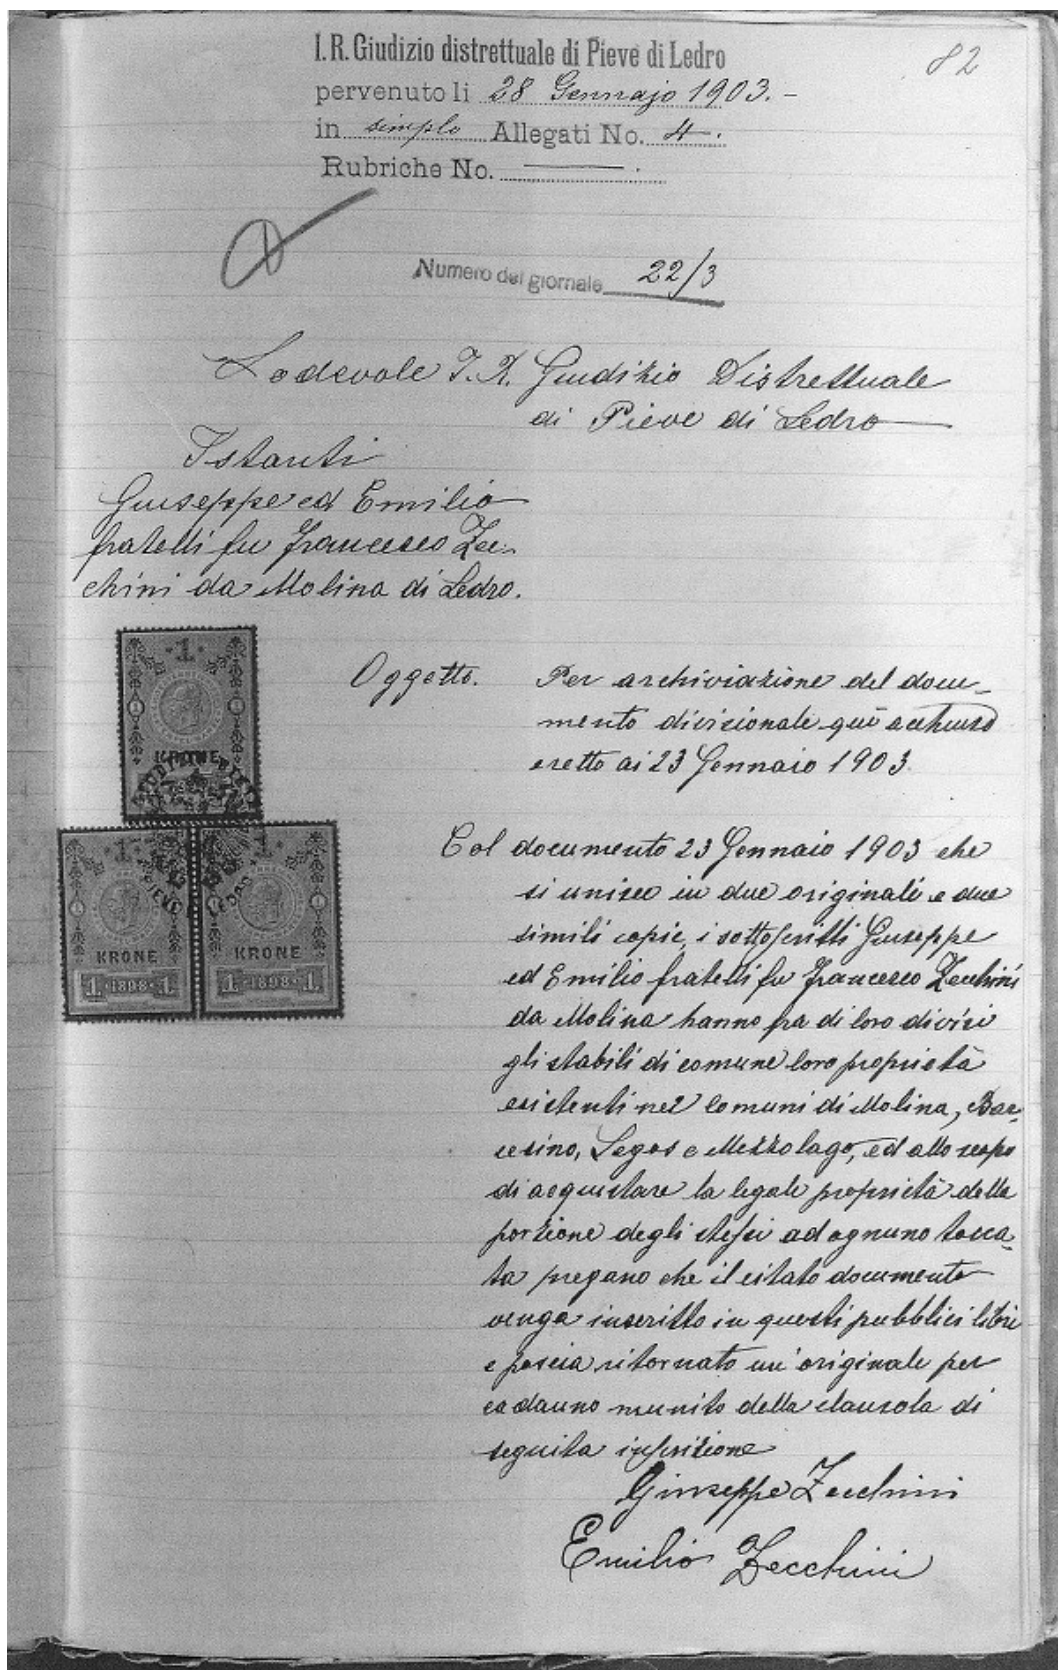 82
I. R. Giudizio distrettuale di Pieve di Ledro
pervenuto li 28 Gennajo 1903. -
in simplo Allegati No. 4.
Rubriche No.
Numero del giornale 22/3
Lodevole I. R. Giudizio Distrettuale
di Pieve di Ledro
Istanti
Giuseppe ed Emilio
fratelli fu Francesco Zec-
chini da Molina di Ledro.
Oggetto. Per archiviazione del docu-
mento divisionale quì acchiuso
eretto ai 23 Gennaio 1903
1
KRONE
Col documento 23 Gennaio 1903 che
si unisce in due originali e due
simili copie, i sottoscritti Giuseppe
ed Emilio fratelli fu Francesco Zecchini
da Molina hanno fra di loro divisi
gli stabili di comune loro proprietà
esistenti nei comuni di Molina, Bar-
cesino, Legos e Mezzolago, ed allo scopo
di acquistare la legale proprietà della
porzione degli stessi ad ognuno tocca-
ta pregano che il citato documento
venga inscritto in questi pubblici libri
e poscia ritornato un' originale per
cadauno munito della clausola di
seguita inscrizione
1
KRONE
1 1898 1
1
KRONE
1 1898 1
Giuseppe Zecchini
Emilio Zecchini